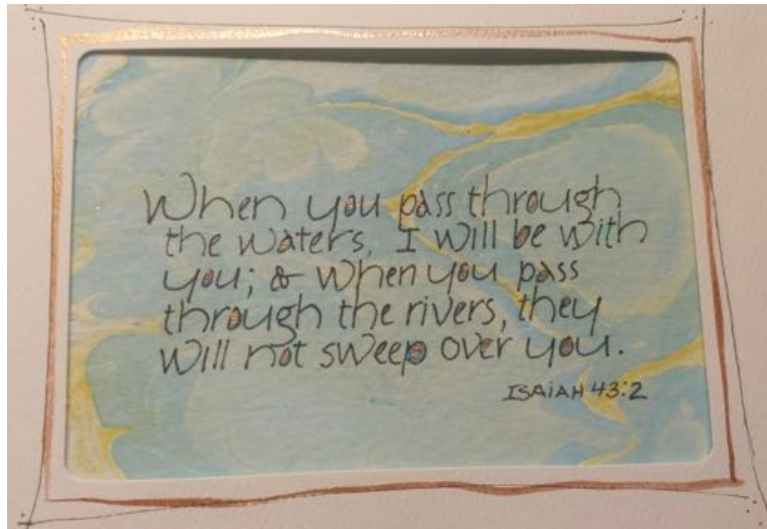 When you pass through
the waters, I will be with
you; & when you pass
through the rivers, they
will not sweep over you.
ISAiAH 43:2